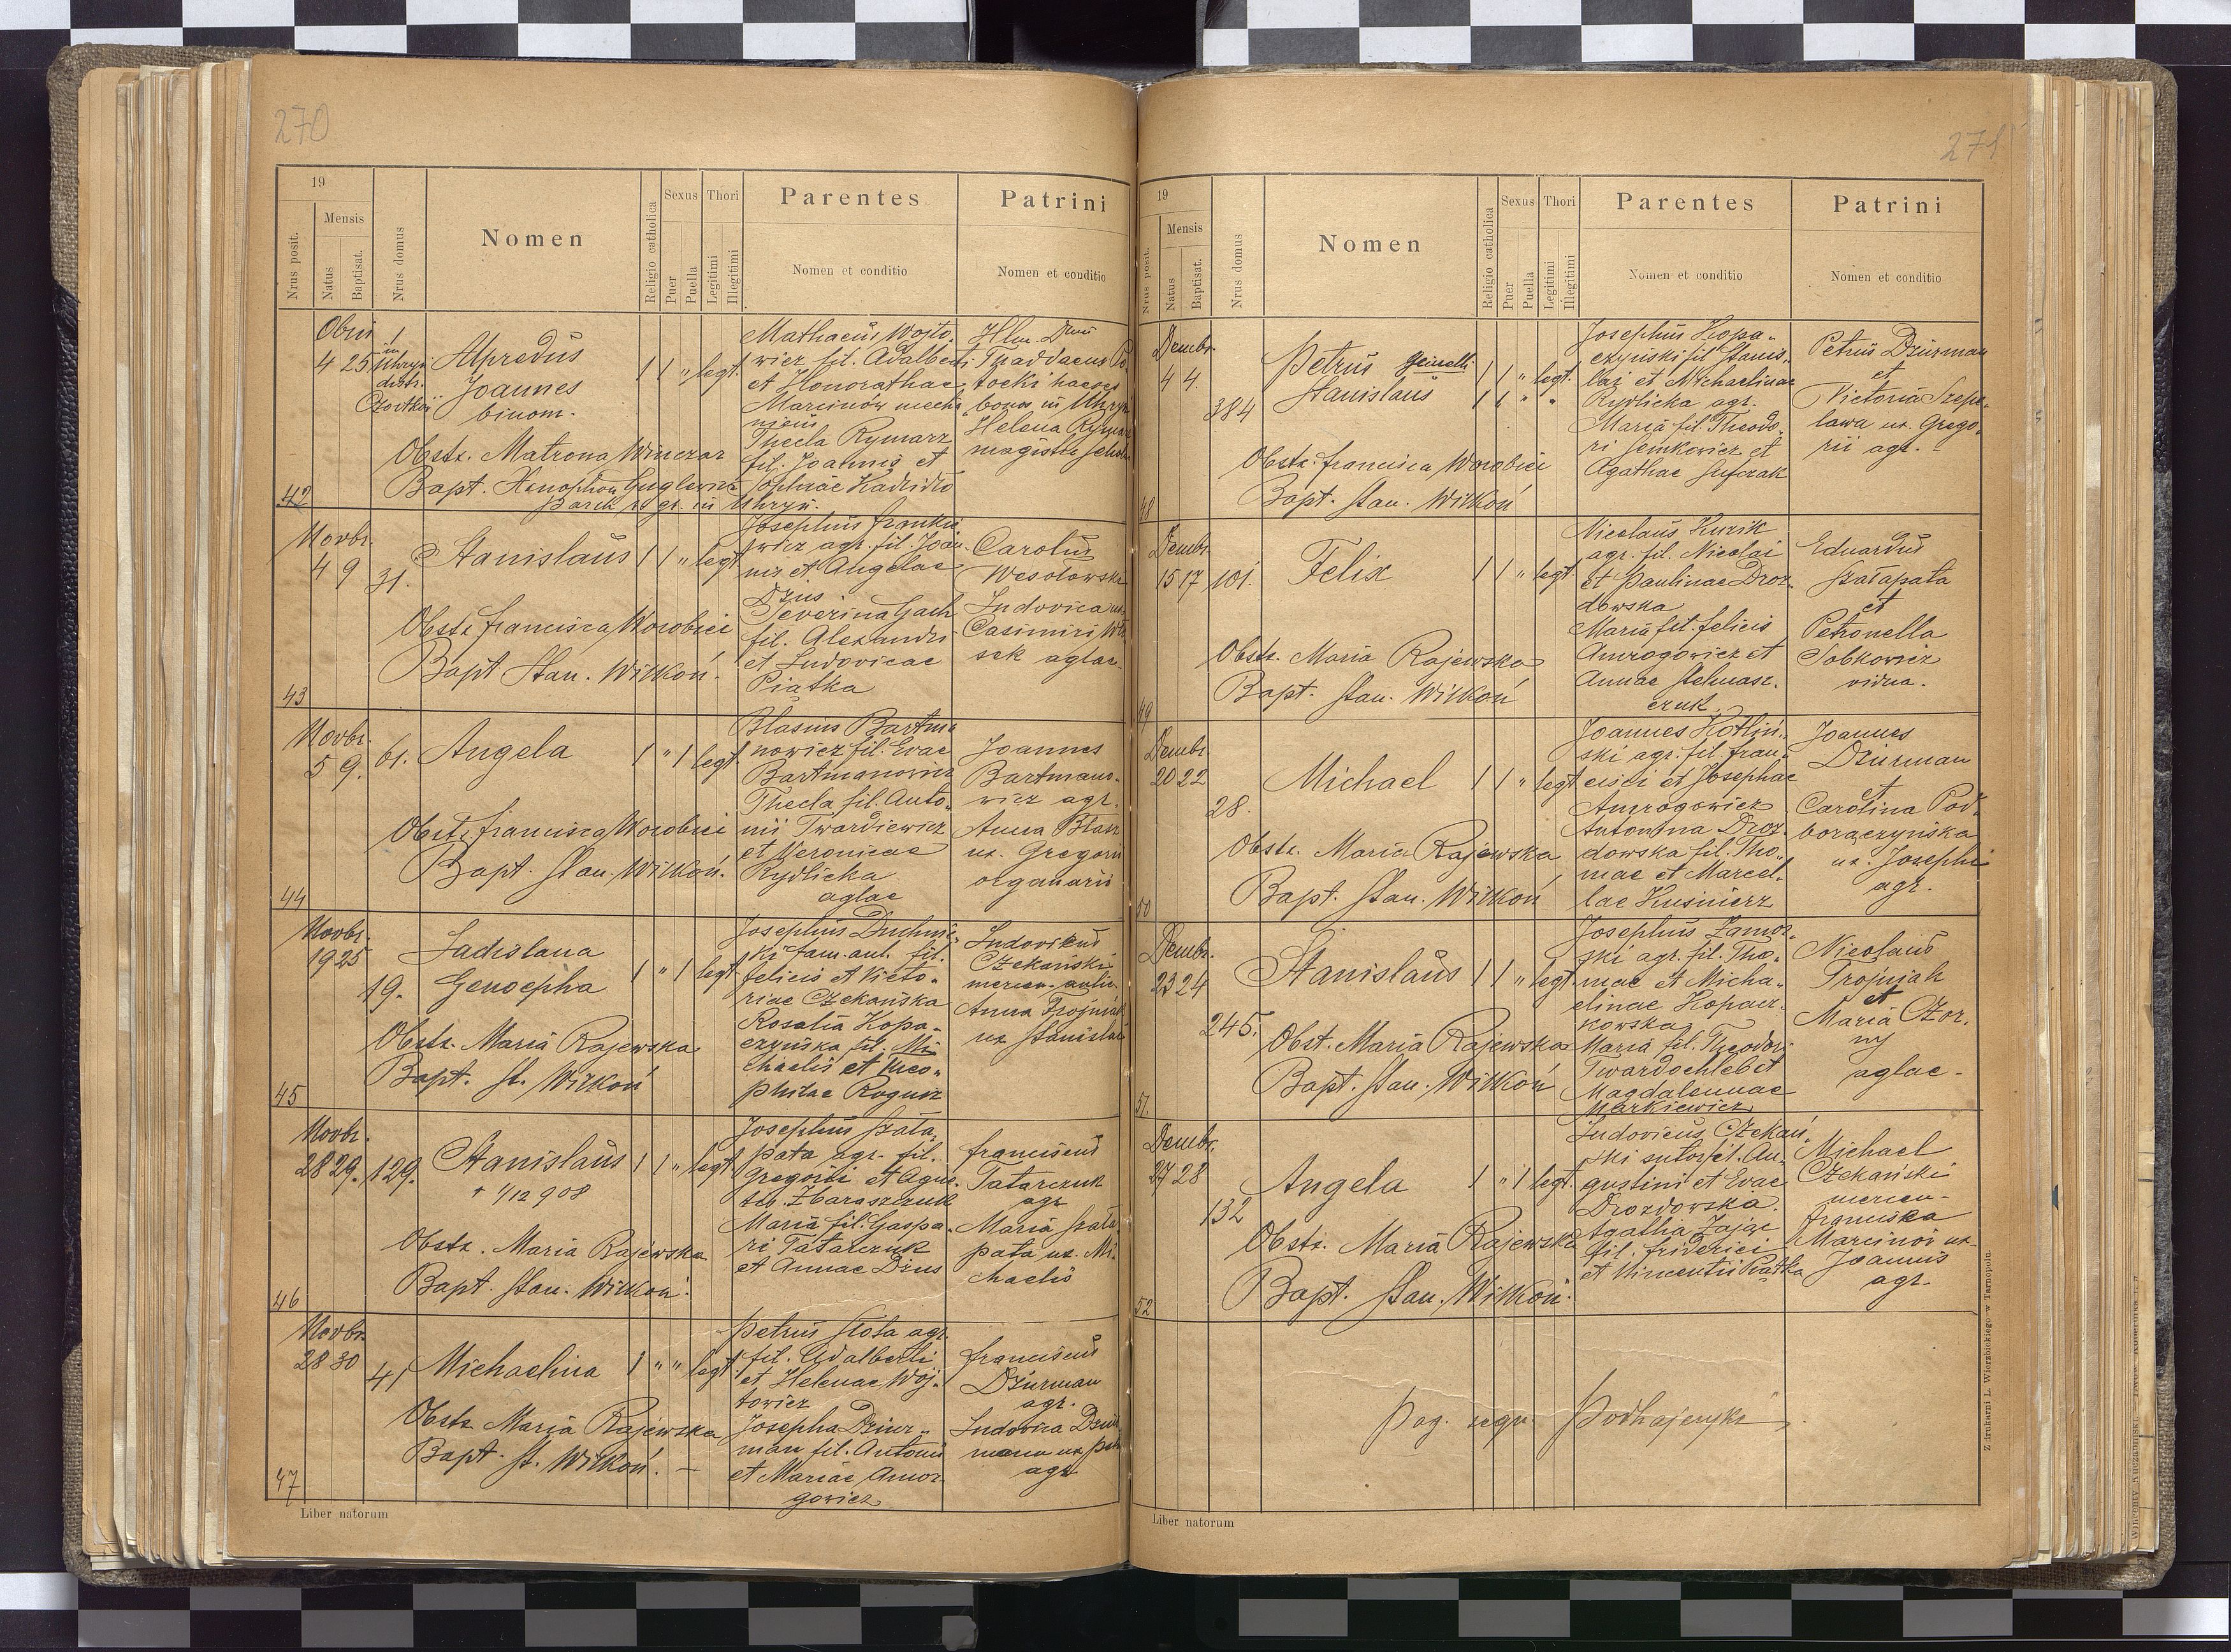 270
19
Mensis
Nrus posit.
Natus
Baptisat.
Nrus domus
Nomen
Religio catholica
Sexus
Puer
Puella
Thori
Legitimi
Illegitimi
Parentes
Nomen et conditio
Patrini
Nomen et conditio
42
4 25
1
in
Uhryń
distr.
Czortków
Alfredus
Joannes
binom.
1 1 " legt.
Obstr. Matrona Winczar
Bapt.
in Uhryń.
Mathaeus Wojto-
wicz fil. Adalberti
et Honorathae
Marcinów
Thecla Rymarz
fil. Joannis et
Sophiae
Thaddaeus Po
tocki haeres
bonor. in Uhryń
Helena Rymarz
43
Novbr.
4 9
31.
Stanislaus
1 1 " legt
Obstr. Francisca Worobiei
Bapt. Stan. Witkoń.
Josephus Frankie
wicz agr. fil. Joan-
nis et Angelae
Dzus
Severina Gach
fil. Alexandri
et Ludovicae
Piatka
Carolus
Wesołowski
Ludovica ux.
Casimiri
aglae.
44
Novbr.
5 9.
61.
Angela
1 " 1 legt
Obstr. Francisca Worobiei
Bapt. Stan. Witkoń.
Blasius Bartma
nowicz fil. Evae
Bartmanowicz
Thecla fil. Anto-
nii Twardiewicz
et Veronicae
Rydlicka
aglae
Joannes
Bartmano-
wicz agr.
Anna
ux. Gregorii
organarii
45
Novbr.
19 25
19.
Ladislaua
Genoepha
1 " 1 legt
Obstr. Maria Rajewska
Bapt. St. Witkoń
Josephus
fil.
Felicis et Victo-
riae Czekańska
Rosalia Kopa-
czyńska fil. Mi
chaelis et Theo-
philae Rogusz
Ludovicus
Czekański
Anna Trojniak
ux Stanislai
46
Novbr.
28 29.
129.
Stanislaus
+ 1/12 908
1 1 " legt.
Obstr. Maria Rajewska
Bapt. Stan. Witkoń.
Josephus Szała-
pata agr. fil.
Gregorii et Agne-
tis Haraszczuk
Maria fil. Gaspa-
ri Tatarczuk
et Annae Dzus
Franciscus
Tatarczuk
agr
Maria Szała
pata ux. Mi
chaelis
47
Novbr.
28 30
41
Michaelina
1 " " legt
Obstr. Maria Rajewska
Bapt. St. Witkoń. —
Petrus Słota agr.
fil. Adalberti
et Helenae Woj-
towicz
Josepha Dziur-
man fil. Antonii
et Mariae Amor-
gowicz
Franciscus
Dziurman
agr.
Ludovica Dziur
mann ux
agr
Liber natorum
271
19
Mensis
Nrus posit.
Natus
Baptisat.
Nrus domus
Nomen
Religio catholica
Sexus
Puer
Puella
Thori
Legitimi
Illegitimi
Parentes
Nomen et conditio
Patrini
Nomen et conditio
48
Dembr.
4 4.
384
Petrus gemelli
Stanislaus
1 1 " legt.
1 1 " "
Obstr. Francisca Worobiei
Bapt. Stan. Witkoń
Josephus Kopa-
czyński fil Stanis-
lai et Michaelinae
Rydlicka agr.
Maria fil. Theodo-
ri Semkowicz et
Agathae
Petrus Dziurman
et
Victoria Szepe-
lawa ux. Grego-
rii agr. -
49
Dembr.
15 17
101.
Felix
1 1 " legt
Obstr. Maria Rajewska
Bapt. Stan. Witkoń
Nicolaus Kuzik
agr. fil. Nicolai
et Paulinae Droz-
dowska
Maria fil. Felicis
Amrogowicz et
Annae Stelmasz-
czuk.
Eduardus
Szałapata
et
Petronella
Sobkowicz
vidua.
50
Dembr.
20 22
28.
Michael
1 1 " legt
Obstr. Maria Rajewska
Bapt. Stan. Witkoń
Joannes Kotliń-
ski agr. fil. Fran-
cisci et Josephae
Amrogowicz
Antonina Droz-
dowska fil. Tho-
mae et Marcel-
lae Kusnierz
Joannes
Dziurman
et
Carolina Pod-
horaczyńska
ux. Josephi
agr.
51.
Dembr.
23 24
245.
Stanislaus
1 1 " legt
Obst. Maria Rajewska
Bapt. Stan. Witkoń
Josephus Zamor-
ski agr. fil. Tho-
mae et Micha-
elinae Kopacz-
kowska
Maria fil. Theodori
Twardochleb et
Magdalennae
Markiewicz
Nicolaus
Trojniak
et
Maria Czor-
ny
aglae -
52
Dembr.
27 28
132
Angela
1 " 1 legt.
Obstr. Maria Rajewska
Bapt. Stan. Witkoń.
Ludovicus Czekań-
ski sutor fil. Au-
gustini et Evae
Drozdowska.
Agatha Zając
fil. Friderici
et Vincentii Piatka
Michael
Czekański
mercen-
Franciska
Marcinów ux-
Joannis
agr.
Pag. seqn. Podhajczyki
Liber natorum
Z drukarni L. Wierzbickiego w Tarnopolu.